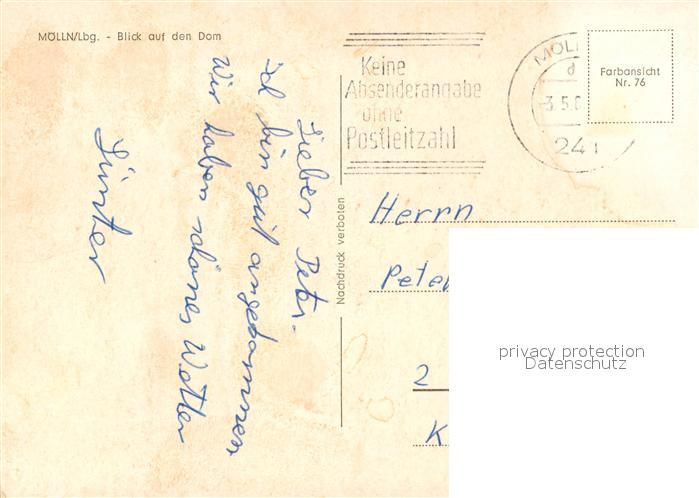 MÖLLN/Lbg. - Blick auf den Dom
Lieber Peter.
ich bin gut angekommen
Wir haben schönes Wetter
Günter
Nachdruck verboten
Keine
Absenderangabe
ohne
Postleitzahl
MÖLL
d
-3.5.6
241
Farbansicht
Nr. 76
Herrn
Peter
2
K
privacy protection
Datenschutz